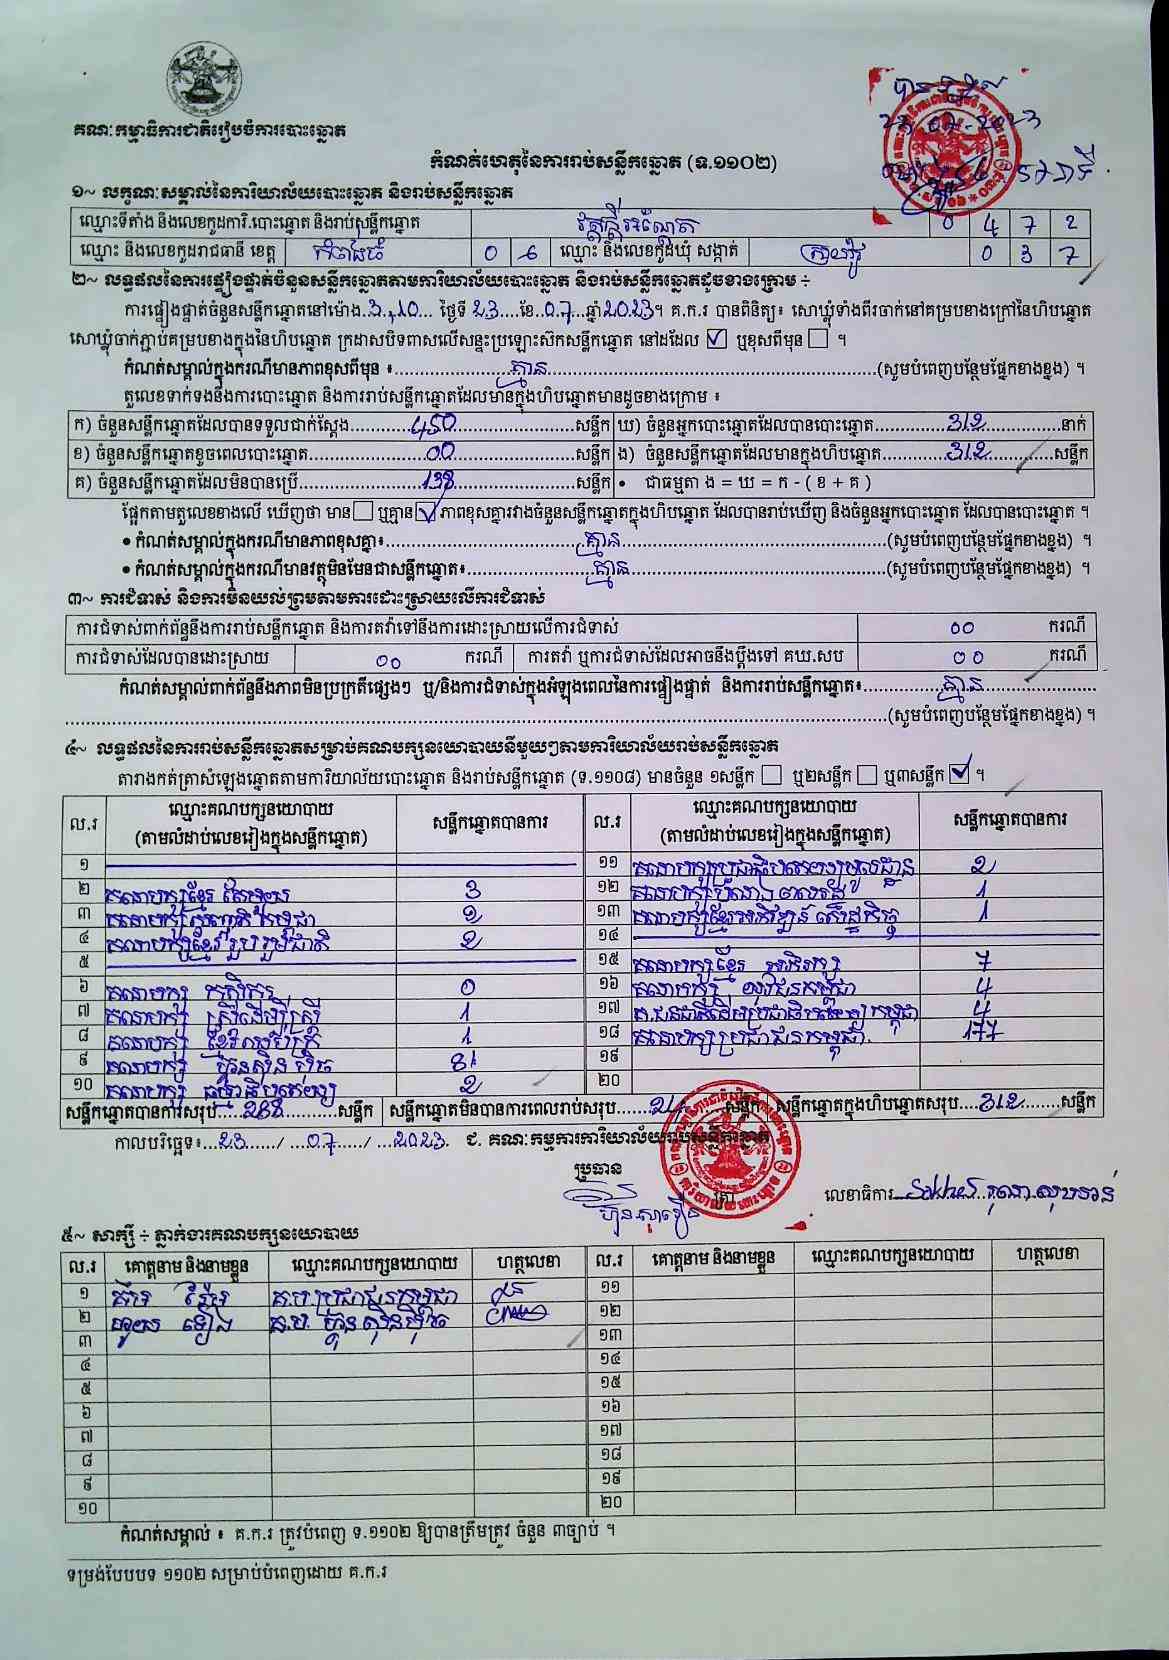 គណៈកម្មាធិការជាតិរៀបចំការបោះឆ្នោត
កំណត់ហេតុនៃការរាប់សន្លឹកឆ្នោត (ទ.១១០២)
១~ លក្ខណៈសម្គាល់នៃការិយាល័យបោះឆ្នោត និងរាប់សន្លឹកឆ្នោត
ឈ្មោះទីតាំង និងលេខកូដការិ.បោះឆ្នោត និងរាប់សន្លឹកឆ្នោត 0 4 7 2
ឈ្មោះ និងលេខកូដរាជធានី ខេត្ត កំពង់ធំ 0 6 ឈ្មោះ និងលេខកូដឃុំ សង្កាត់ 0 3 7
២~ លទ្ធផលនៃការផ្ទៀងផ្ទាត់ចំនួនសន្លឹកឆ្នោតតាមការិយាល័យបោះឆ្នោត និងរាប់សន្លឹកឆ្នោតដូចខាងក្រោម ÷
ការផ្ទៀងផ្ទាត់ចំនួនសន្លឹកឆ្នោតនៅម៉ោង..3,10... ថ្ងៃទី 23....ខែ..07...ឆ្នាំ2023។ គ.ក.រ បានពិនិត្យ៖ សោឃ្លុំទាំងពីរចាក់នៅគម្របខាងក្រៅនៃហិបឆ្នោត
សោឃ្លុំចាក់ភ្ជាប់គម្របខាងក្នុងនៃហិបឆ្នោត ក្រដាសបិទពាសលើសន្ទះប្រឡោះស៊កសន្លឹកឆ្នោត នៅដដែល ☑ ឬខុសពីមុន ☐ ។
កំណត់សម្គាល់ក្នុងករណីមានភាពខុសពីមុន ៖..........គ្មាន..........(សូមបំពេញបន្ថែមផ្នែកខាងខ្នង) ។
តួលេខទាក់ទងនឹងការបោះឆ្នោត និងការរាប់សន្លឹកឆ្នោតដែលមានក្នុងហិបឆ្នោតមានដូចខាងក្រោម ៖
ក) ចំនួនសន្លឹកឆ្នោតដែលបានទទួលជាក់ស្តែង.......450.......សន្លឹក ឃ) ចំនួនអ្នកបោះឆ្នោតដែលបានបោះឆ្នោត.......312.......នាក់
ខ) ចំនួនសន្លឹកឆ្នោតខូចពេលបោះឆ្នោត.......00.......សន្លឹក ង) ចំនួនសន្លឹកឆ្នោតដែលមានក្នុងហិបឆ្នោត.......312.......សន្លឹក
គ) ចំនួនសន្លឹកឆ្នោតដែលមិនបានប្រើ.......138.......សន្លឹក • ជាធម្មតា ង = ឃ = ក - ( ខ + គ )
ផ្អែកតាមតួលេខខាងលើ ឃើញថា មាន ☐ ឬគ្មាន ☑ ភាពខុសគ្នារវាងចំនួនសន្លឹកឆ្នោតក្នុងហិបឆ្នោត ដែលបានរាប់ឃើញ និងចំនួនអ្នកបោះឆ្នោត ដែលបានបោះឆ្នោត ។
• កំណត់សម្គាល់ក្នុងករណីមានភាពខុសគ្នា៖..........គ្មាន..........(សូមបំពេញបន្ថែមផ្នែកខាងខ្នង) ។
• កំណត់សម្គាល់ក្នុងករណីមានវត្ថុមិនមែនជាសន្លឹកឆ្នោត៖..........គ្មាន..........(សូមបំពេញបន្ថែមផ្នែកខាងខ្នង) ។
៣~ ការជំទាស់ និងការមិនយល់ព្រមតាមការដោះស្រាយលើការជំទាស់
ការជំទាស់ពាក់ព័ន្ធនឹងការរាប់សន្លឹកឆ្នោត និងការតវ៉ាទៅនឹងការដោះស្រាយលើការជំទាស់ 00 ករណី
ការជំទាស់ដែលបានដោះស្រាយ 00 ករណី ការតវ៉ា ឬការជំទាស់ដែលអាចនឹងប្តឹងទៅ គឃ.សប 00 ករណី
កំណត់សម្គាល់ពាក់ព័ន្ធនឹងភាពមិនប្រក្រតីផ្សេងៗ ឬ/និងការជំទាស់ក្នុងអំឡុងពេលនៃការផ្ទៀងផ្ទាត់ និងការរាប់សន្លឹកឆ្នោត៖..........គ្មាន..........
..........(សូមបំពេញបន្ថែមផ្នែកខាងខ្នង) ។
៤~ លទ្ធផលនៃការរាប់សន្លឹកឆ្នោតសម្រាប់គណបក្សនយោបាយនីមួយៗតាមការិយាល័យរាប់សន្លឹកឆ្នោត
តារាងកត់ត្រាសំឡេងឆ្នោតតាមការិយាល័យបោះឆ្នោត និងរាប់សន្លឹកឆ្នោត (ទ.១១០៨) មានចំនួន ១សន្លឹក ☐ ឬ២សន្លឹក ☐ ឬ៣សន្លឹក ☑ ។
ល.រ ឈ្មោះគណបក្សនយោបាយ (តាមលំដាប់លេខរៀងក្នុងសន្លឹកឆ្នោត) សន្លឹកឆ្នោតបានការ ល.រ ឈ្មោះគណបក្សនយោបាយ (តាមលំដាប់លេខរៀងក្នុងសន្លឹកឆ្នោត) សន្លឹកឆ្នោតបានការ
១ ១១ គណបក្សប្រជាធិបតេយ្យមូលដ្ឋាន 2
២ គណបក្សខ្មែរ តែមួយ 3 ១២ 1
៣ គណបក្ស សញ្ជាតិកម្ពុជា ១៣ គណបក្សខ្មែរអភិវឌ្ឍន៍ សេដ្ឋកិច្ច 1
៤ គណបក្សខ្មែររួបរួមជាតិ 2 ១៤
៥ ១៥ គណបក្សខ្មែរ អភិរក្ស 7
៦ គណបក្ស កសិករ 0 ១៦ គណបក្ស យុវជនកម្ពុជា 4
៧ គណបក្ស ស្ត្រីដើម្បីស្ត្រី 1 ១៧ គ.ជនជាតិដើមប្រជាធិបតេយ្យកម្ពុជា 4
៨ គណបក្ស 1 ១៨ គណបក្សប្រជាជនកម្ពុជា 177
៩ គណបក្ស ហ្វ៊ុនស៊ិនប៉ិច ១៩
១០ គណបក្ស ធម្មាធិបតេយ្យ 2 ២០
សន្លឹកឆ្នោតបានការសរុប..288.......សន្លឹក សន្លឹកឆ្នោតមិនបានការពេលរាប់សរុប......24......សន្លឹក សន្លឹកឆ្នោតក្នុងហិបឆ្នោតសរុប....312.......សន្លឹក
កាលបរិច្ឆេទ៖..23....../ ...07....../ ...2023. ជ. គណៈកម្មការការិយាល័យរាប់សន្លឹកឆ្នោត
ប្រធាន
លេខាធិការ
៥~ សាក្សី ÷ ភ្នាក់ងារគណបក្សនយោបាយ
ល.រ គោត្តនាម និងនាមខ្លួន ឈ្មោះគណបក្សនយោបាយ ហត្ថលេខា ល.រ គោត្តនាម និងនាមខ្លួន ឈ្មោះគណបក្សនយោបាយ ហត្ថលេខា
១ គ.ប.ប្រជាជនកម្ពុជា ១១
២ គ.ប. ហ្វ៊ុនស៊ិនប៉ិច ១២
៣ ១៣
៤ ១៤
៥ ១៥
៦ ១៦
៧ ១៧
៨ ១៨
៩ ១៩
១០ ២០
កំណត់សម្គាល់ ៖ គ.ក.រ ត្រូវបំពេញ ទ.១១០២ ឱ្យបានត្រឹមត្រូវ ចំនួន ៣ច្បាប់ ។
ទម្រង់បែបបទ ១១០២ សម្រាប់បំពេញដោយ គ.ក.រ